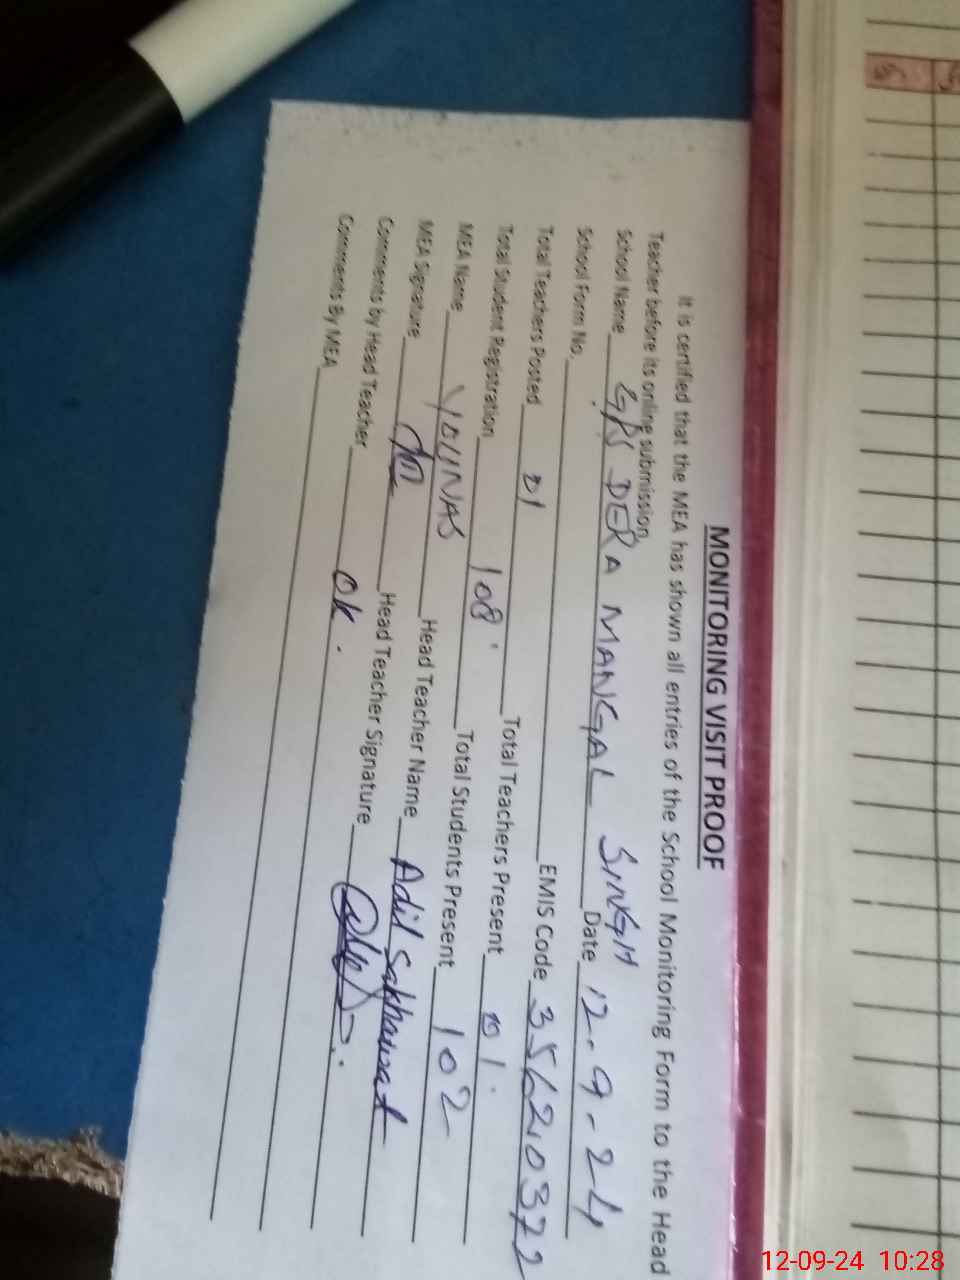 MONITORING VISIT PROOF
It is certified that the MEA has shown all entries of the School Monitoring Form to the Head
Teacher before its online submission.
School Name GPS DERA MANGAL SINGH Date 12-9-24
School Form No. EMIS Code 35620372
Total Teachers Posted 01 Total Teachers Present 01.
Total Student Registration 108 Total Students Present 102
MEA Name YOUNAS Head Teacher Name Adil Sakhawat
MEA Signature Head Teacher Signature
Comments by Head Teacher OK.
Comments By MEA
12-09-24 10:28